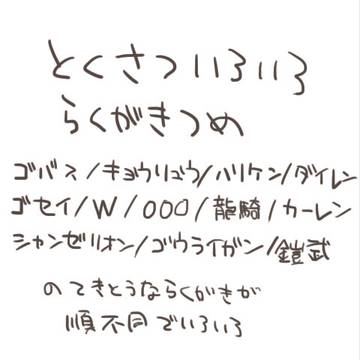 とくさついろいろ
らくがきつめ
ゴバス/キョウリュウ/ハリケン/ダイレン
ゴセイ/W/OOO/龍騎/カーレン
シャンゼリオン/ゴウライガン/鎧武
のてきとうならくがきが
順不同でいろいろ